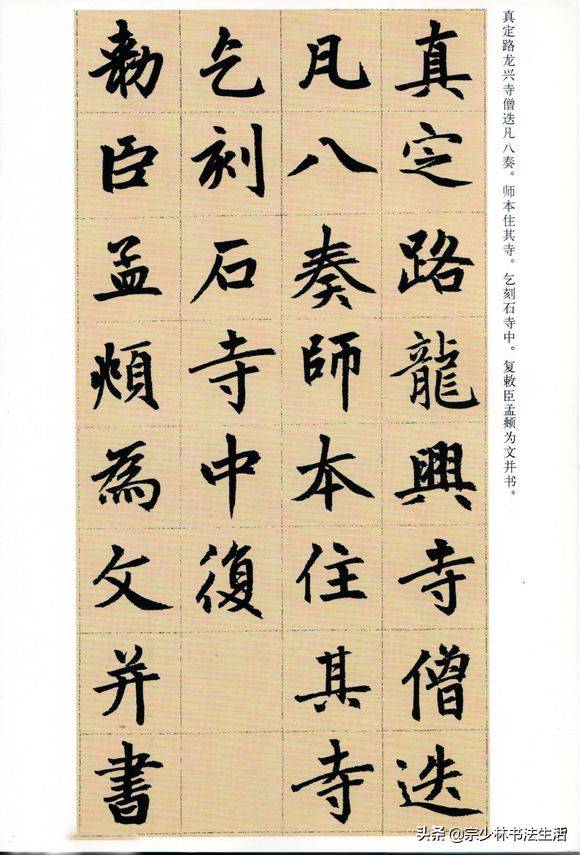 真定路龙兴寺僧迭凡八奏。师本住其寺。乞刻石寺中。复敕臣孟頫为文并书。
真定路龍興寺僧迭
凡八奏師本住其寺
乞刻石寺中復
勅臣孟頫為文并書
头条 @宗少林书法生活